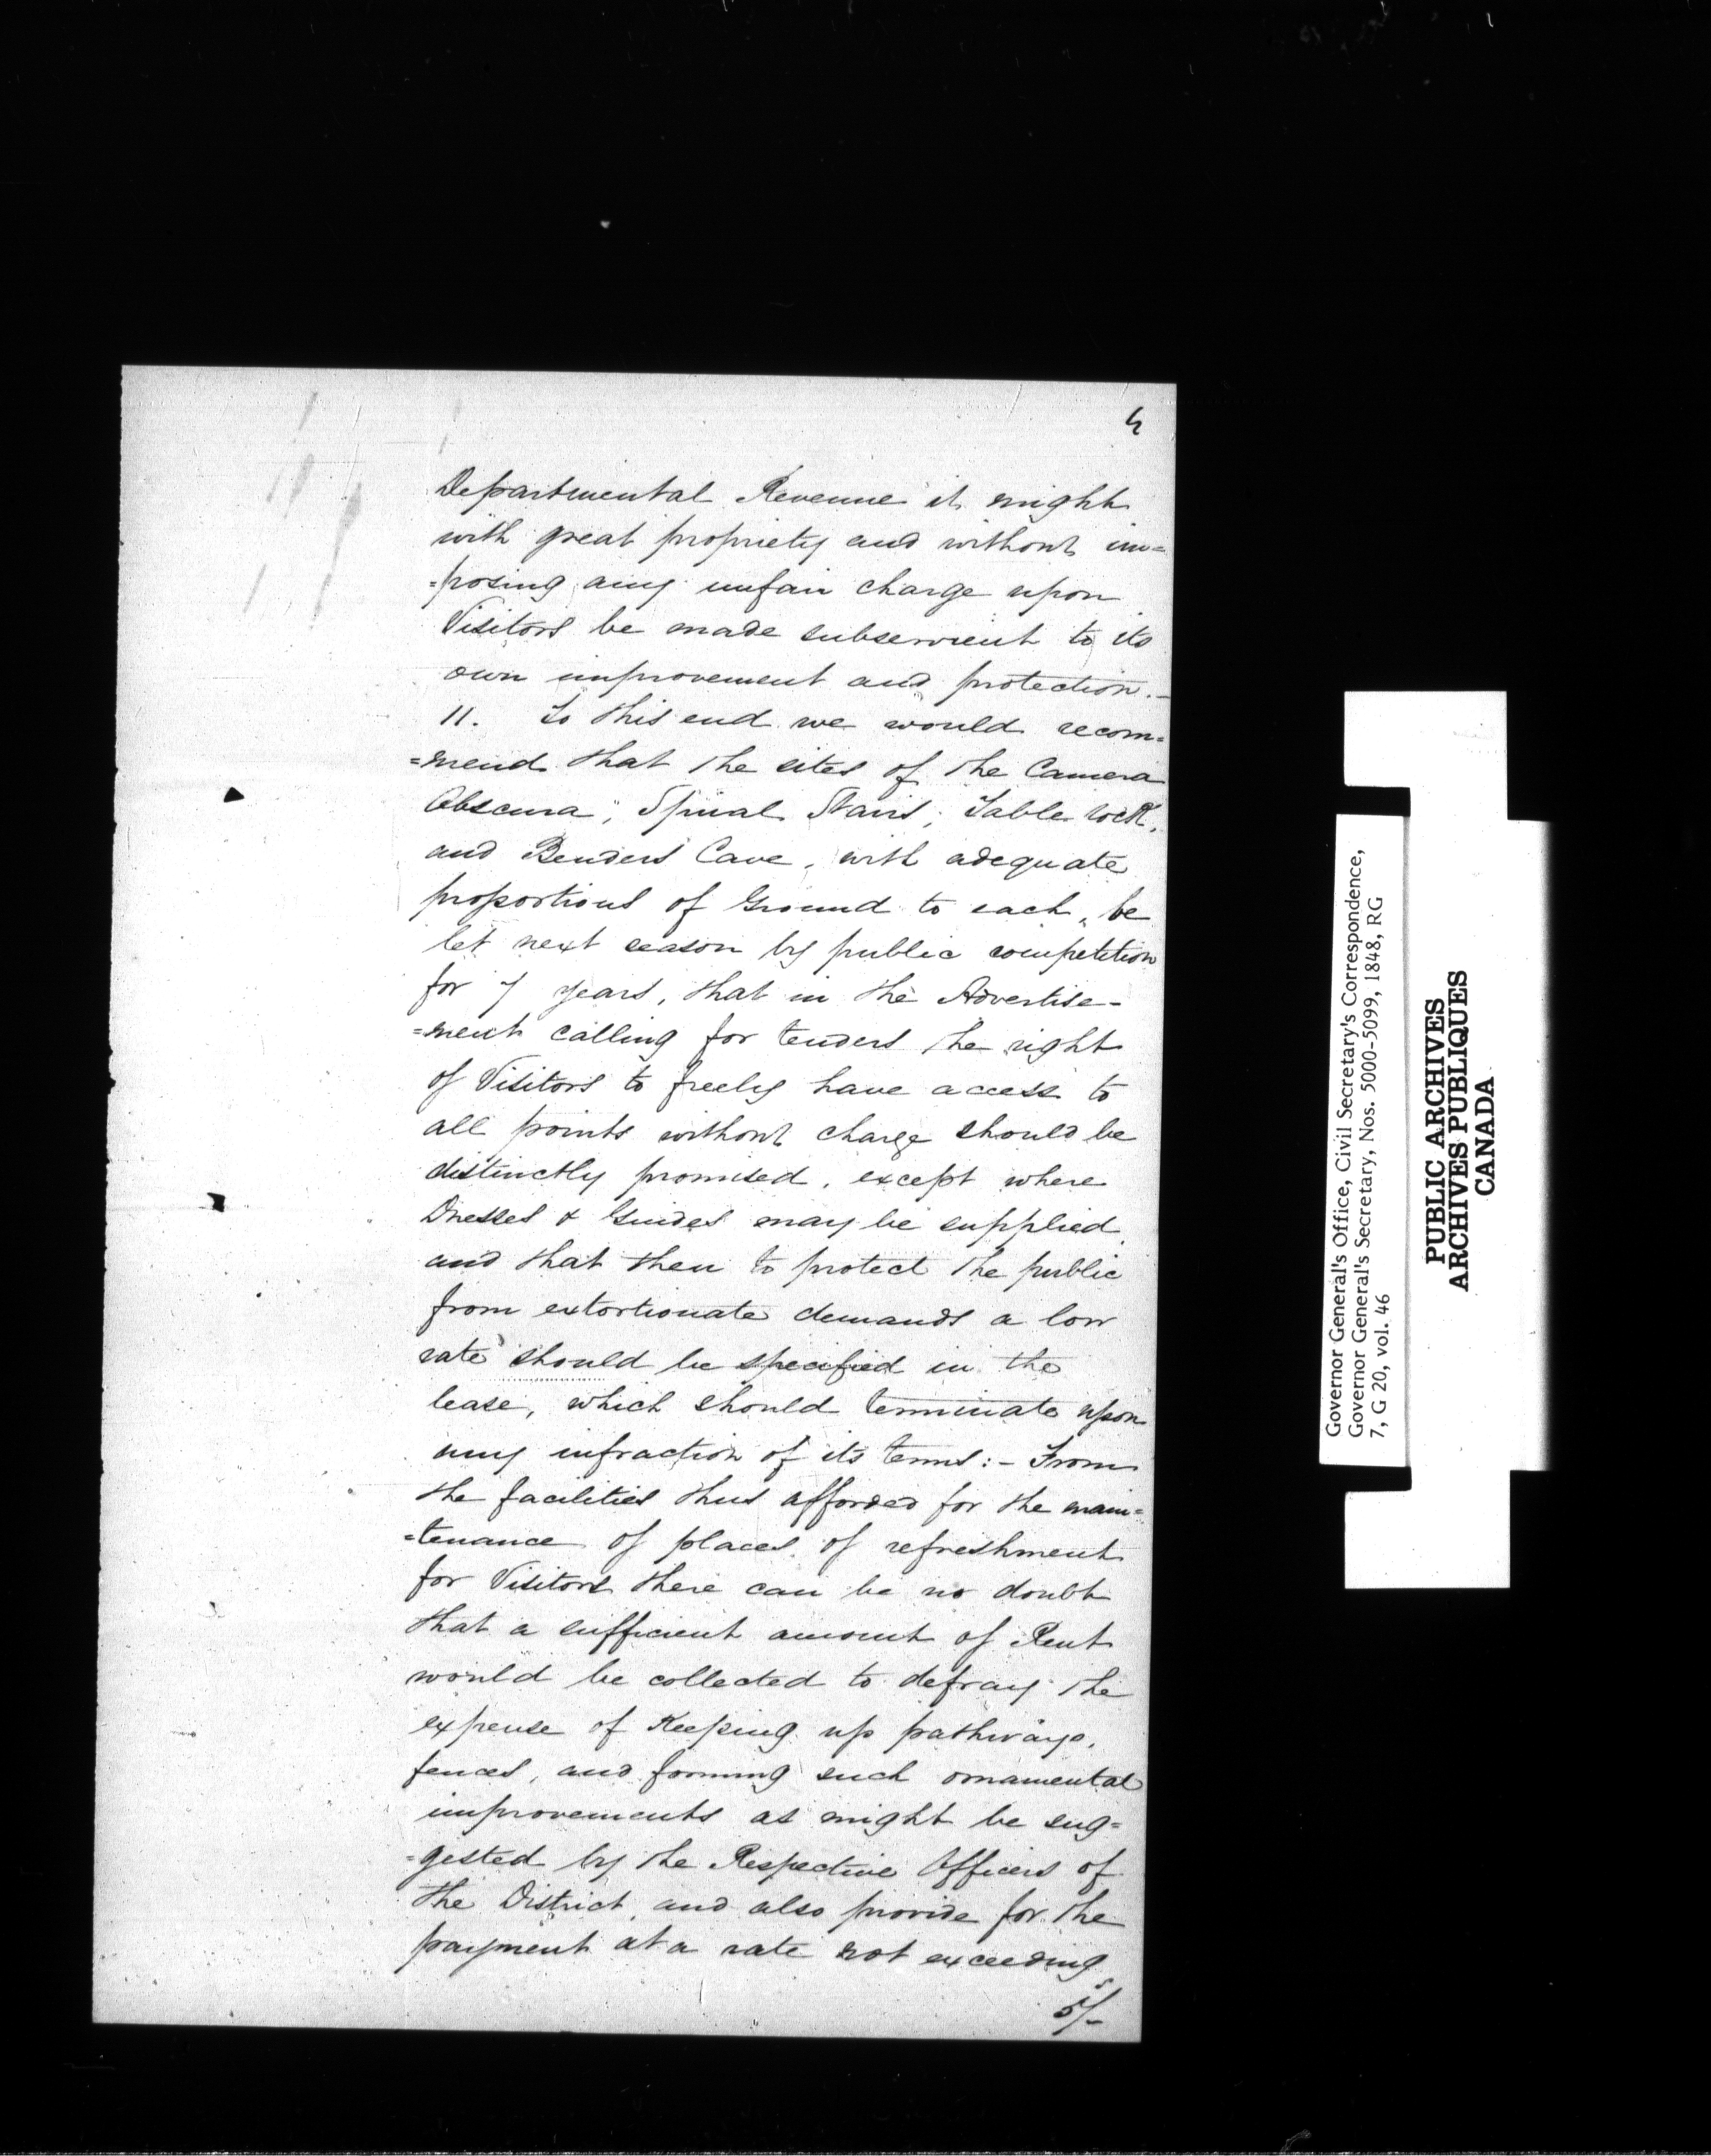 5
Departmental Revenue it might
with great propriety and without im=
=posing any unfair charge upon
Visitors be made subservient to its
own improvement and protection.-
11. To this end we would recom=
=mend that the sites of the Camera
Obscura, Spiral Stairs, Table rock,
and Benders Cave, with adequate
proportions of Ground to each, be
let next season by public competition
for 7 years, that in the Advertise-
=ment calling for tenders the right
of Visitors to freely have access to
all points without charge should be
distinctly promised, except where
Dresses & Guides may be supplied,
and that then to protect the public
from extortionate demands a low
rate should be specified in the
lease, which should terminate upon
any infraction of its terms:- From
the facilities thus afforded for the main=
=tenance of places of refreshment
for Visitors there can be no doubt
that a sufficient amount of Rent
would be collected to defray the
expense of Keeping up pathways,
fences, and forming such ornamental
improvements as might be sug=
=gested by the Respective Officers of
the District, and also provide for the
payment at a rate not exceeding
5/-
Governor General's Office, Civil Secretary's Correspondence,
Governor General's Secretary, Nos. 5000-5099, 1848, RG
7, G 20, vol. 46
PUBLIC ARCHIVES
ARCHIVES PUBLIQUES
CANADA